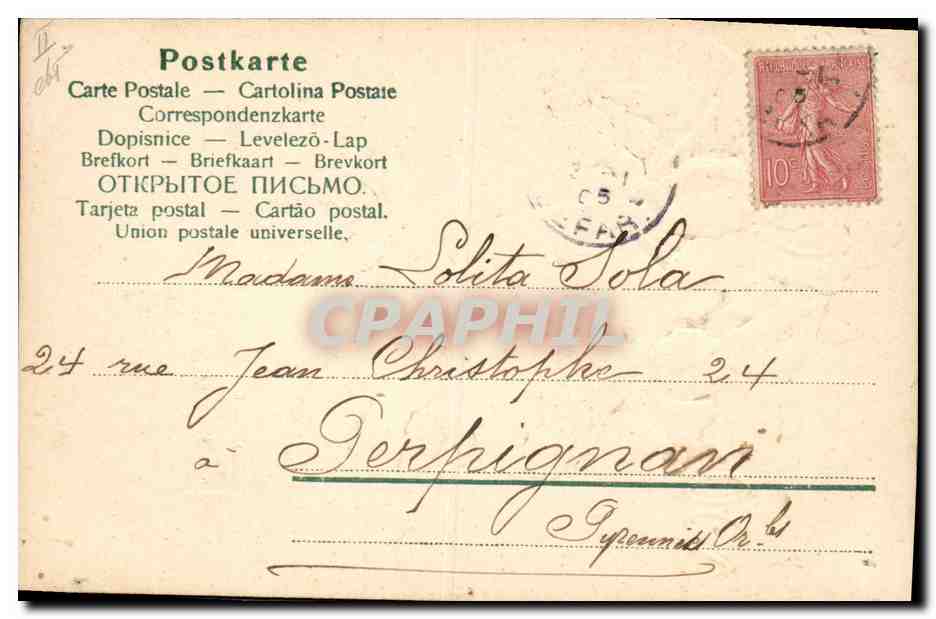 Postkarte
Carte Postale — Cartolina Postale
Correspondenzkarte
Dopisnice — Levelező-Lap
Brefkort — Briefkaart — Brevkort
ОТКРЫТОЕ ПИСЬМО.
Tarjeta postal — Cartão postal.
Union postale universelle.
10c
05
FAR
Madame Lolita Sola
CPAPHIL
24 rue Jean Christophe 24
à Perpignan
Pyrennées Or.les